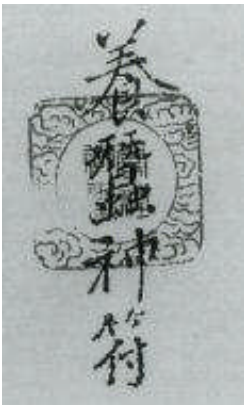 養蠶神符